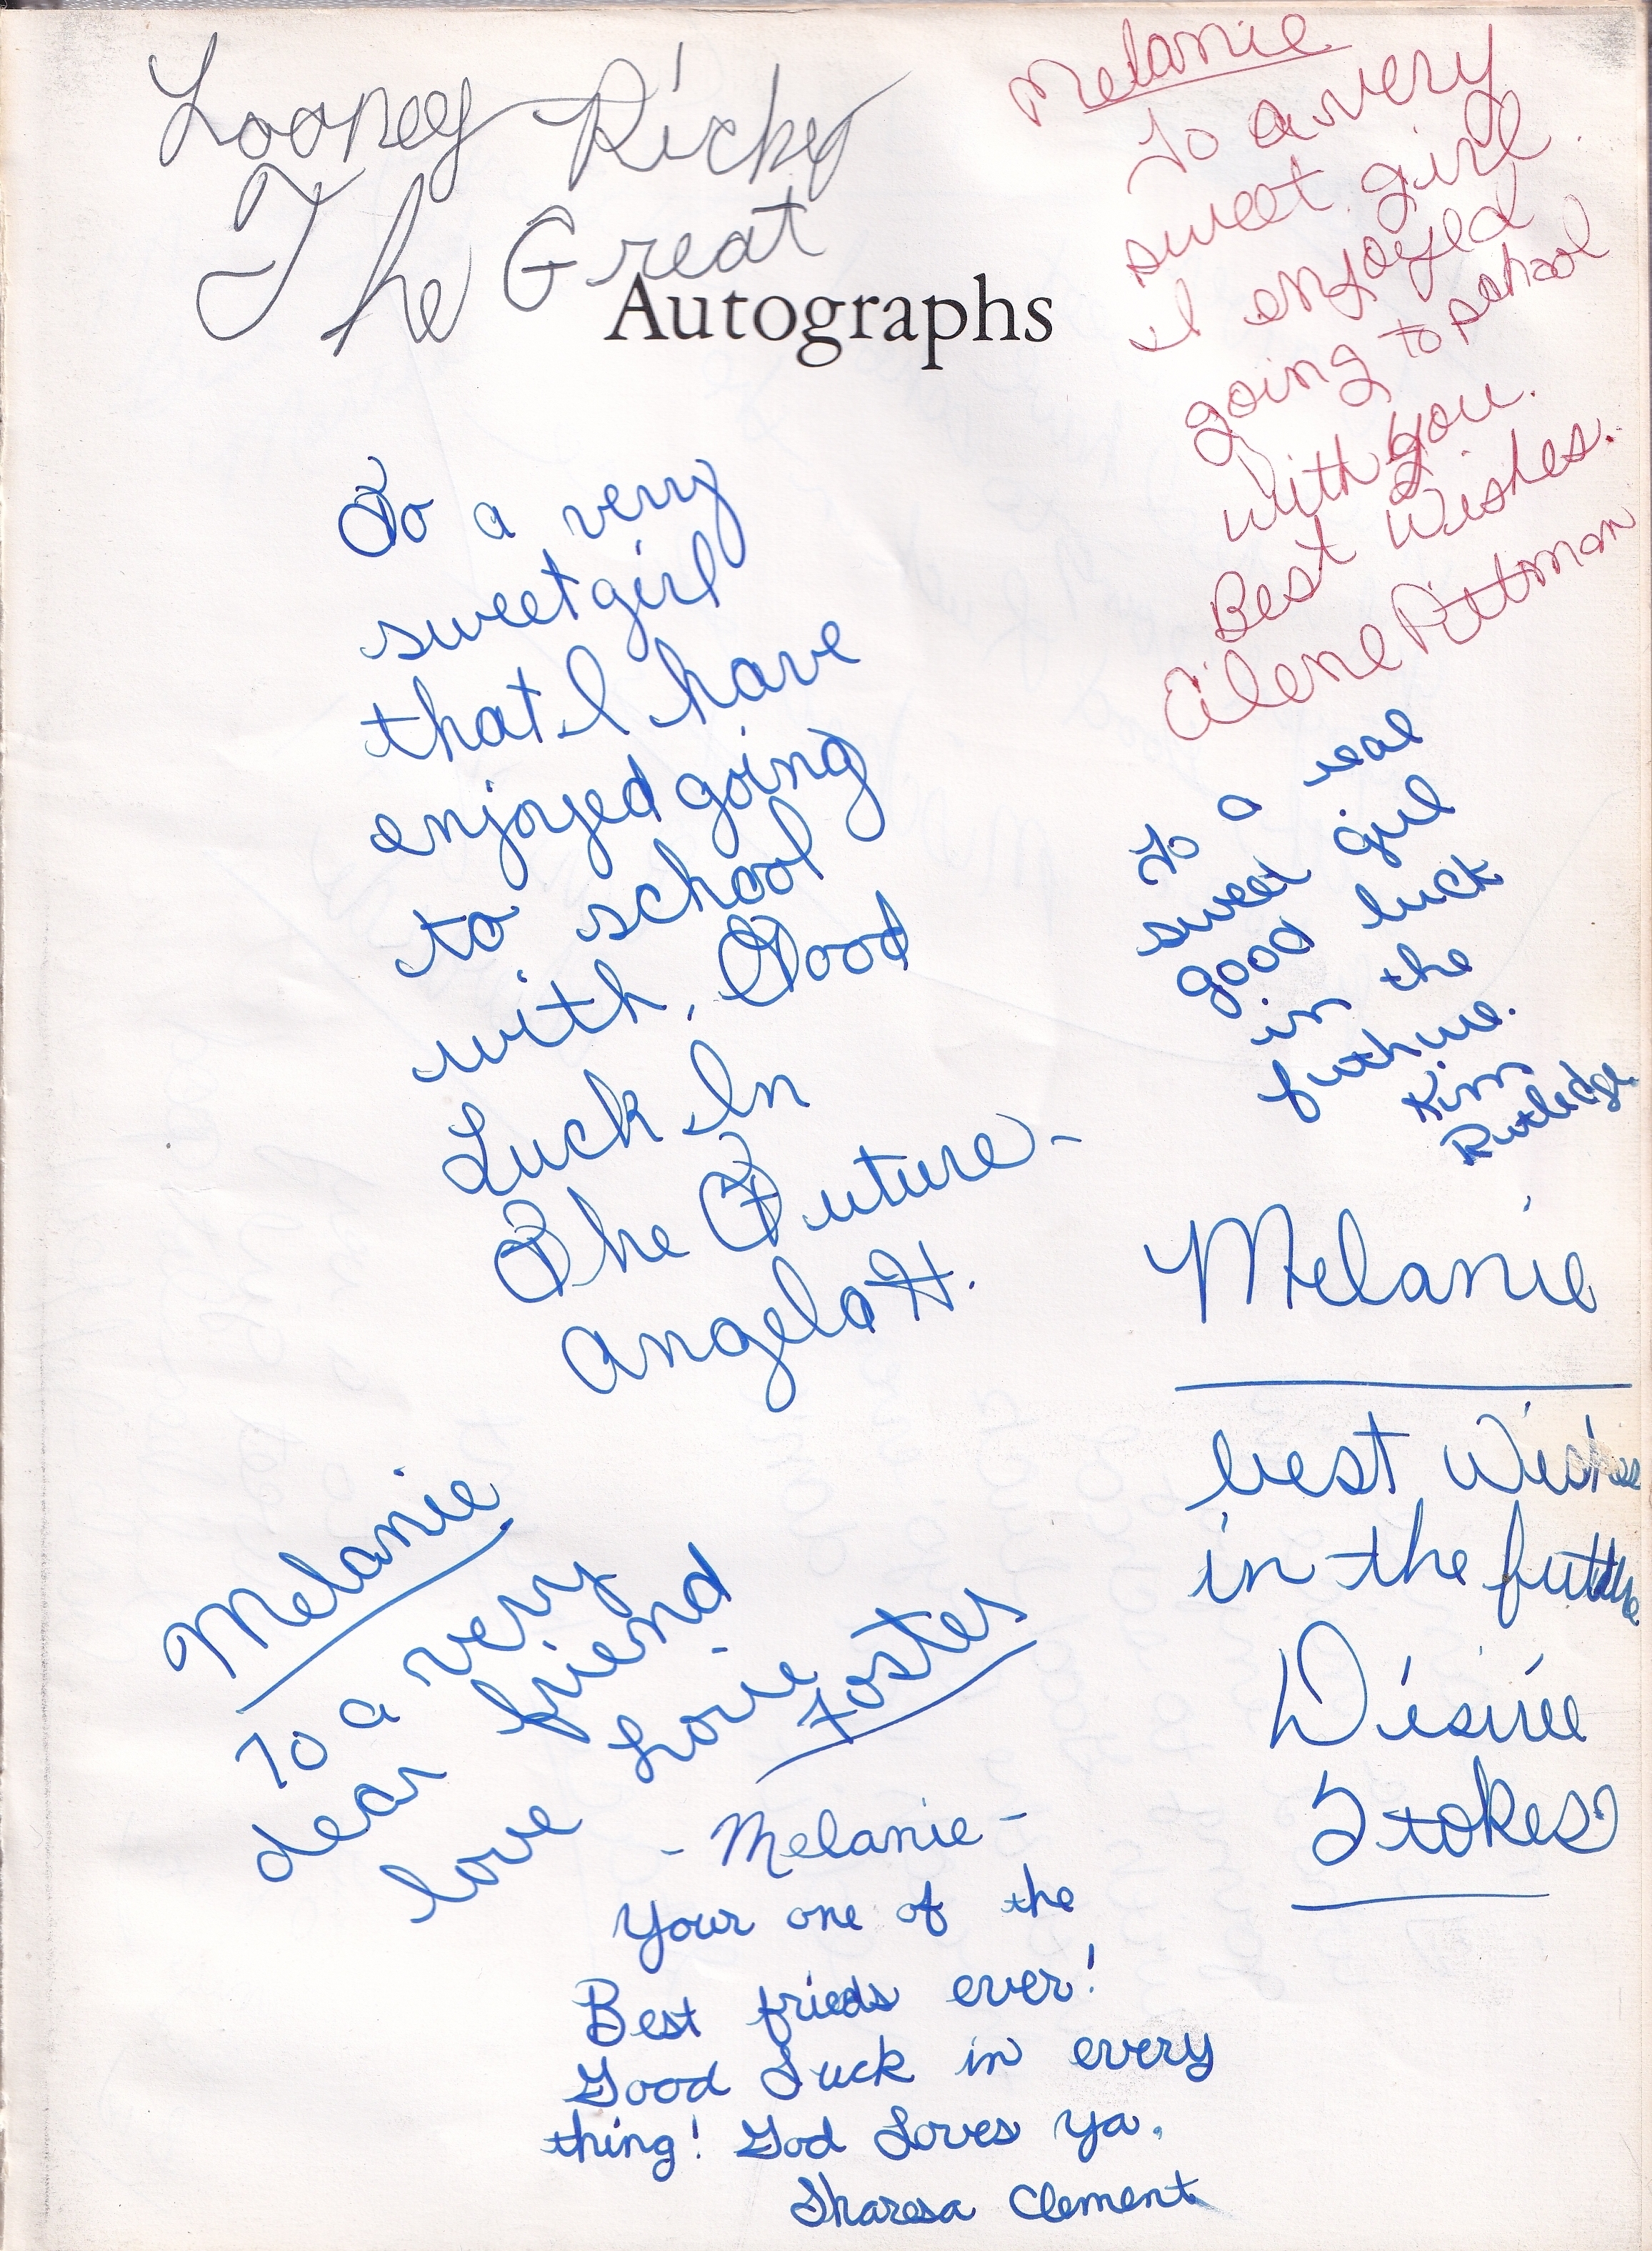 Looney Ricky
The Great
Autographs
Melanie
To a very
sweet girl
I enjoyed
going to school
with you.
Best Wishes.
Alene Pittman
To a very
sweet girl
that I have
enjoyed going
to school
with. Good
Luck In
The Future-
Angela H.
To a real
sweet girl
good luck
in the
futhure.
Kim
Rutledge
Melanie
best Wishes
in the future
Désirée
Stokes
Melanie
To a very
dear friend
love Lorie
Foster
- Melanie -
Your one of the
Best frieds ever!
Good Luck in every
thing! God Loves ya.
Sharesa Clement